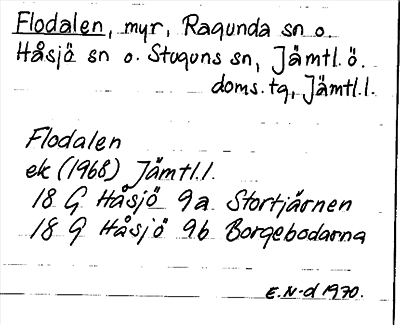 Flodalen, myr, Ragunda sn o.
Håsjö sn o. Stuguns sn, Jämtl. ö.
doms. tg, Jämtl.l.
Flodalen
ek (1968) Jämtl.l.
18 G Håsjö 9a Stortjärnen
18 G Håsjö 9b Borgebodarna
E.N-d 1970.